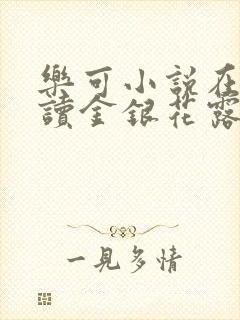 樂可小說在
讀金銀花露
一見多情